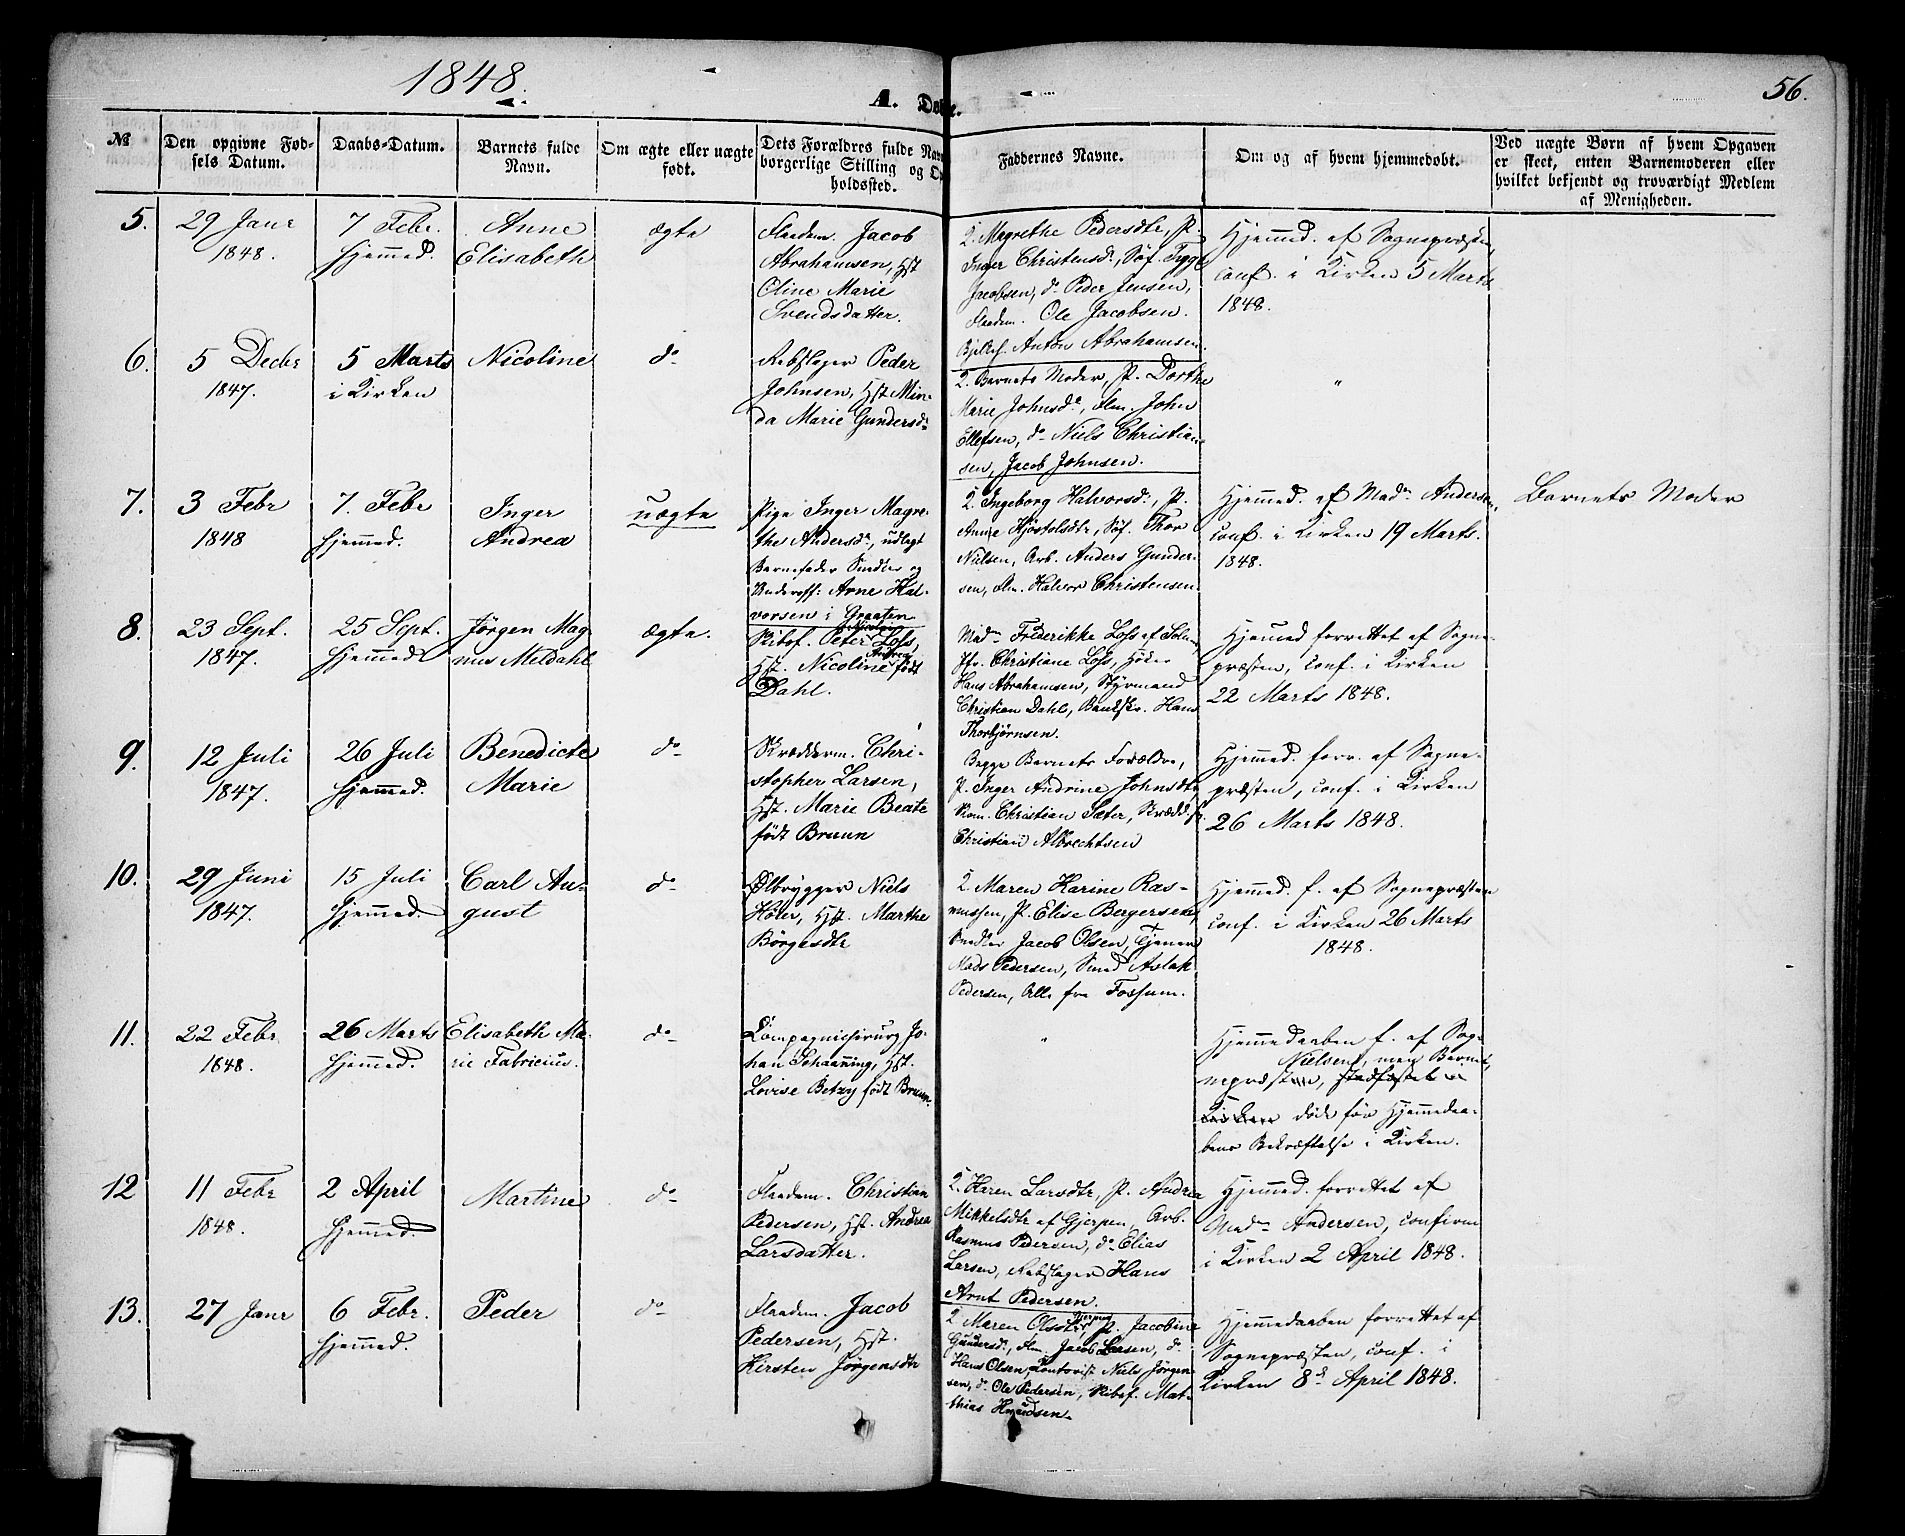 1848.
A. Døbte.
56.
№
Den opgivne Fød-
sels Datum.
Daabs-Datum.
Barnets fulde
Navn.
Om ægte eller uægte
født.
Dets Forældres fulde Navn
borgerlige Stilling og Op
holdssted.
Faddernes Navne.
Om og af hvem hjemmedøbt.
Ved uægte Børn af hvem Opgaven
er skeet, enten Barnemoderen eller
hvilket bekjendt og troværdigt Medlem
af Menigheden.
5.
29 Janr
1848.
7 Febr.
hjemmed.
Anne
Elisabeth
ægte
Flaadem. Jacob
Abrahamsen, Hst
Oline Marie
Svendsdatter.
2. Magrethe Pedersdtr, P.
Inger Christensd., Söf. Tygge
Jacobsen, do Peder Jensen,
Flaadem. Ole Jacobsen.
Anton Abrahamsen.
Hjemmed. af Sognepræsten,
conf. i Kirken 5 Marts
1848.
6.
5 Decbr
1847.
5 Marts
i Kirken
Nicoline
do
Rebslager Peder
Johnsen, Hst. Min-
da Marie Gundersd.
2. Barnets Moder, P. Dorthe
Marie Johnsd., Flm. John
Ellefsen, do Niels Christian-
sen, Jacob Johnsen.
"
7.
3 Febr
1848
7. Febr
hjemmed.
Inger
Andrea
uægte
Pige Inger Magre-
the Andersd., udlagt
Barnefader Smedter og
Underoff: Arne Hal-
vorsen i Graaten
2. Ingeborg Halvorsd., P.
Anne Kjöstolsdtr, Söf. Thor
Nielsen, Arb. Anders Gunder-
sen, Flm. Halvor Christensen.
Hjemmed. af Madm Andersen,
conf. i Kirken 19 Marts.
1848.
Barnets Moder
8.
23 Sept.
1847.
25 Sept.
hjemmed
Jörgen Mag
nus Meldahl
ægte.
Skibsf. Peter Lofs,
Hst. Nicoline Andrea født
Dahl.
Madm Frederikke Lofs af Solum,
Jfr. Christiane Lofs,
Hans Abrahamsen, Styrmand
Christian Dahl, Hans
Thorbjörnsen.
Hjemmed forrettet af Sogne-
præsten, conf. i Kirken
22 Marts 1848.
9.
12 Juli
1847.
26 Juli
hjemmed.
Benedicte
Marie
do
Skrædderm. Chri-
stopher Larsen,
Hst. Marie Beate
født Bruun
Begge Barnets Forældre,
P. Inger Andrine Johnsdtr,
Skom. Christian Sæter, Skrædd.
Christian Albrechtsen
Hjemmed. forr. af Sogne-
præsten, conf. i Kirken
26 Marts 1848.
10.
29 Juni
1847.
15 Juli
hjemmed.
Carl Au-
gust
do
Ølbrygger Niels
Holer, Hst. Marthe
Börgesdtr
2. Maren Karine Ras-
mussen, P. Elise Bergersen,
Smedter Jacob Olsen, Tjener
Mads Pedersen, Smed Aslak
Pedersen, Alle fra Fossum.
Hjemmed. f. af Sognepræsten
conf. i Kirken 26 Marts
1848.
11.
22 Febr
1848.
26 Marts
hjemmed.
Elisabeth Ma-
rie Fabricius.
do
Compagniechirurg Jo-
han Schanning, Hst.
Lovise Betzy født Bruun.
"
Hjemmedaaben f. af Sog-
Nielsen, men Barnet,
nepræsten, stadfæstet i
Kirken døde før Hjemmedaa-
bens Bekræftelse i Kirken.
12
11 Febr
1848.
2 April
hjemmed.
Martine
do
Flaadem. Christian
Pedersen, Hst. Andrea
Larsdatter.
2. Karen Larsdtr, P. Andrea
Mikkelsdtr af Gjerpen, Arb.
Rasmus Pedersen, do Elias
Larsen, Rebslager Hans
Arnt Pedersen.
Hjemmed. forrettet af
Madm Andersen, confirm
i Kirken 2 April 1848.
13.
27 Janr
6 Febr.
hjemmed.
Peder
do
Flaadem. Jacob
Pedersen, Hst.
Kirsten Jörgensdtr
2 Maren Olsdtr, P. Jacobine
Gundersd., Flm. Jacob Larsen, do
Hans Olsen, Contorist Niels Jörgen-
sen, do Ole Pedersen, Skibsf. Mat-
thias Knudsen.
Hjemmedaaben forrettet af
Sognepræsten, conf. i
Kirken 8d April 1848.